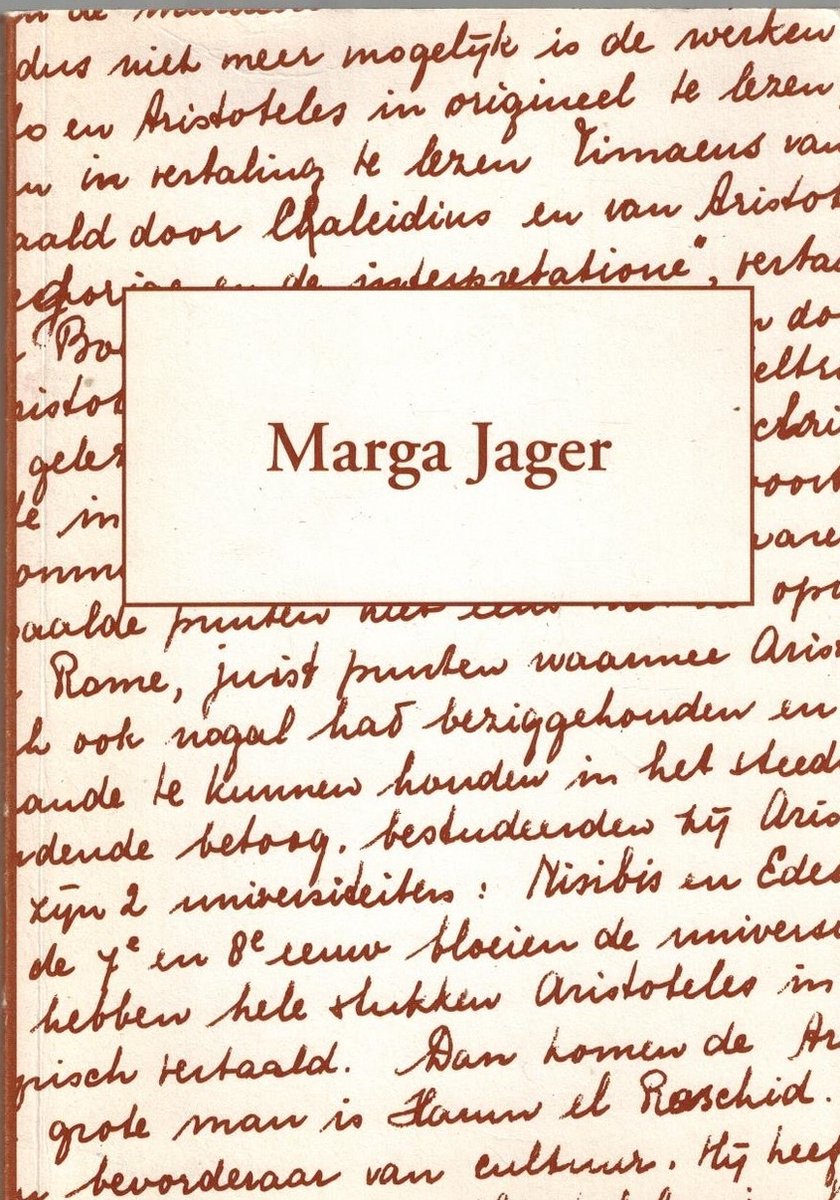 dus niet meer mogelijk is de werken
lo en Aristoteles in origineel te lezen
in vertaling te lezen Timaeus van
aald door Chalcidius en van Aristot
de interpretatione", verta
Bo
do
ristot
eltr
gelez
te in
voort
Marga Jager
omm
ware
paalde punten niet
Rome, juist punten waarmee Aris
ch ook nogal had beziggehouden en
ande te kunnen houden in het steeds
dende betoog. bestudeerden zij Aris
zijn 2 universiteiten: Nisibis en Edes
de 7e en 8e eeuw bloeien de universi
hebben hele stukken Aristoteles in
pisch vertaald. Dan komen de Ar
grote man is Haroun el Raschid.
bevorderaar van cultuur. Hij heef